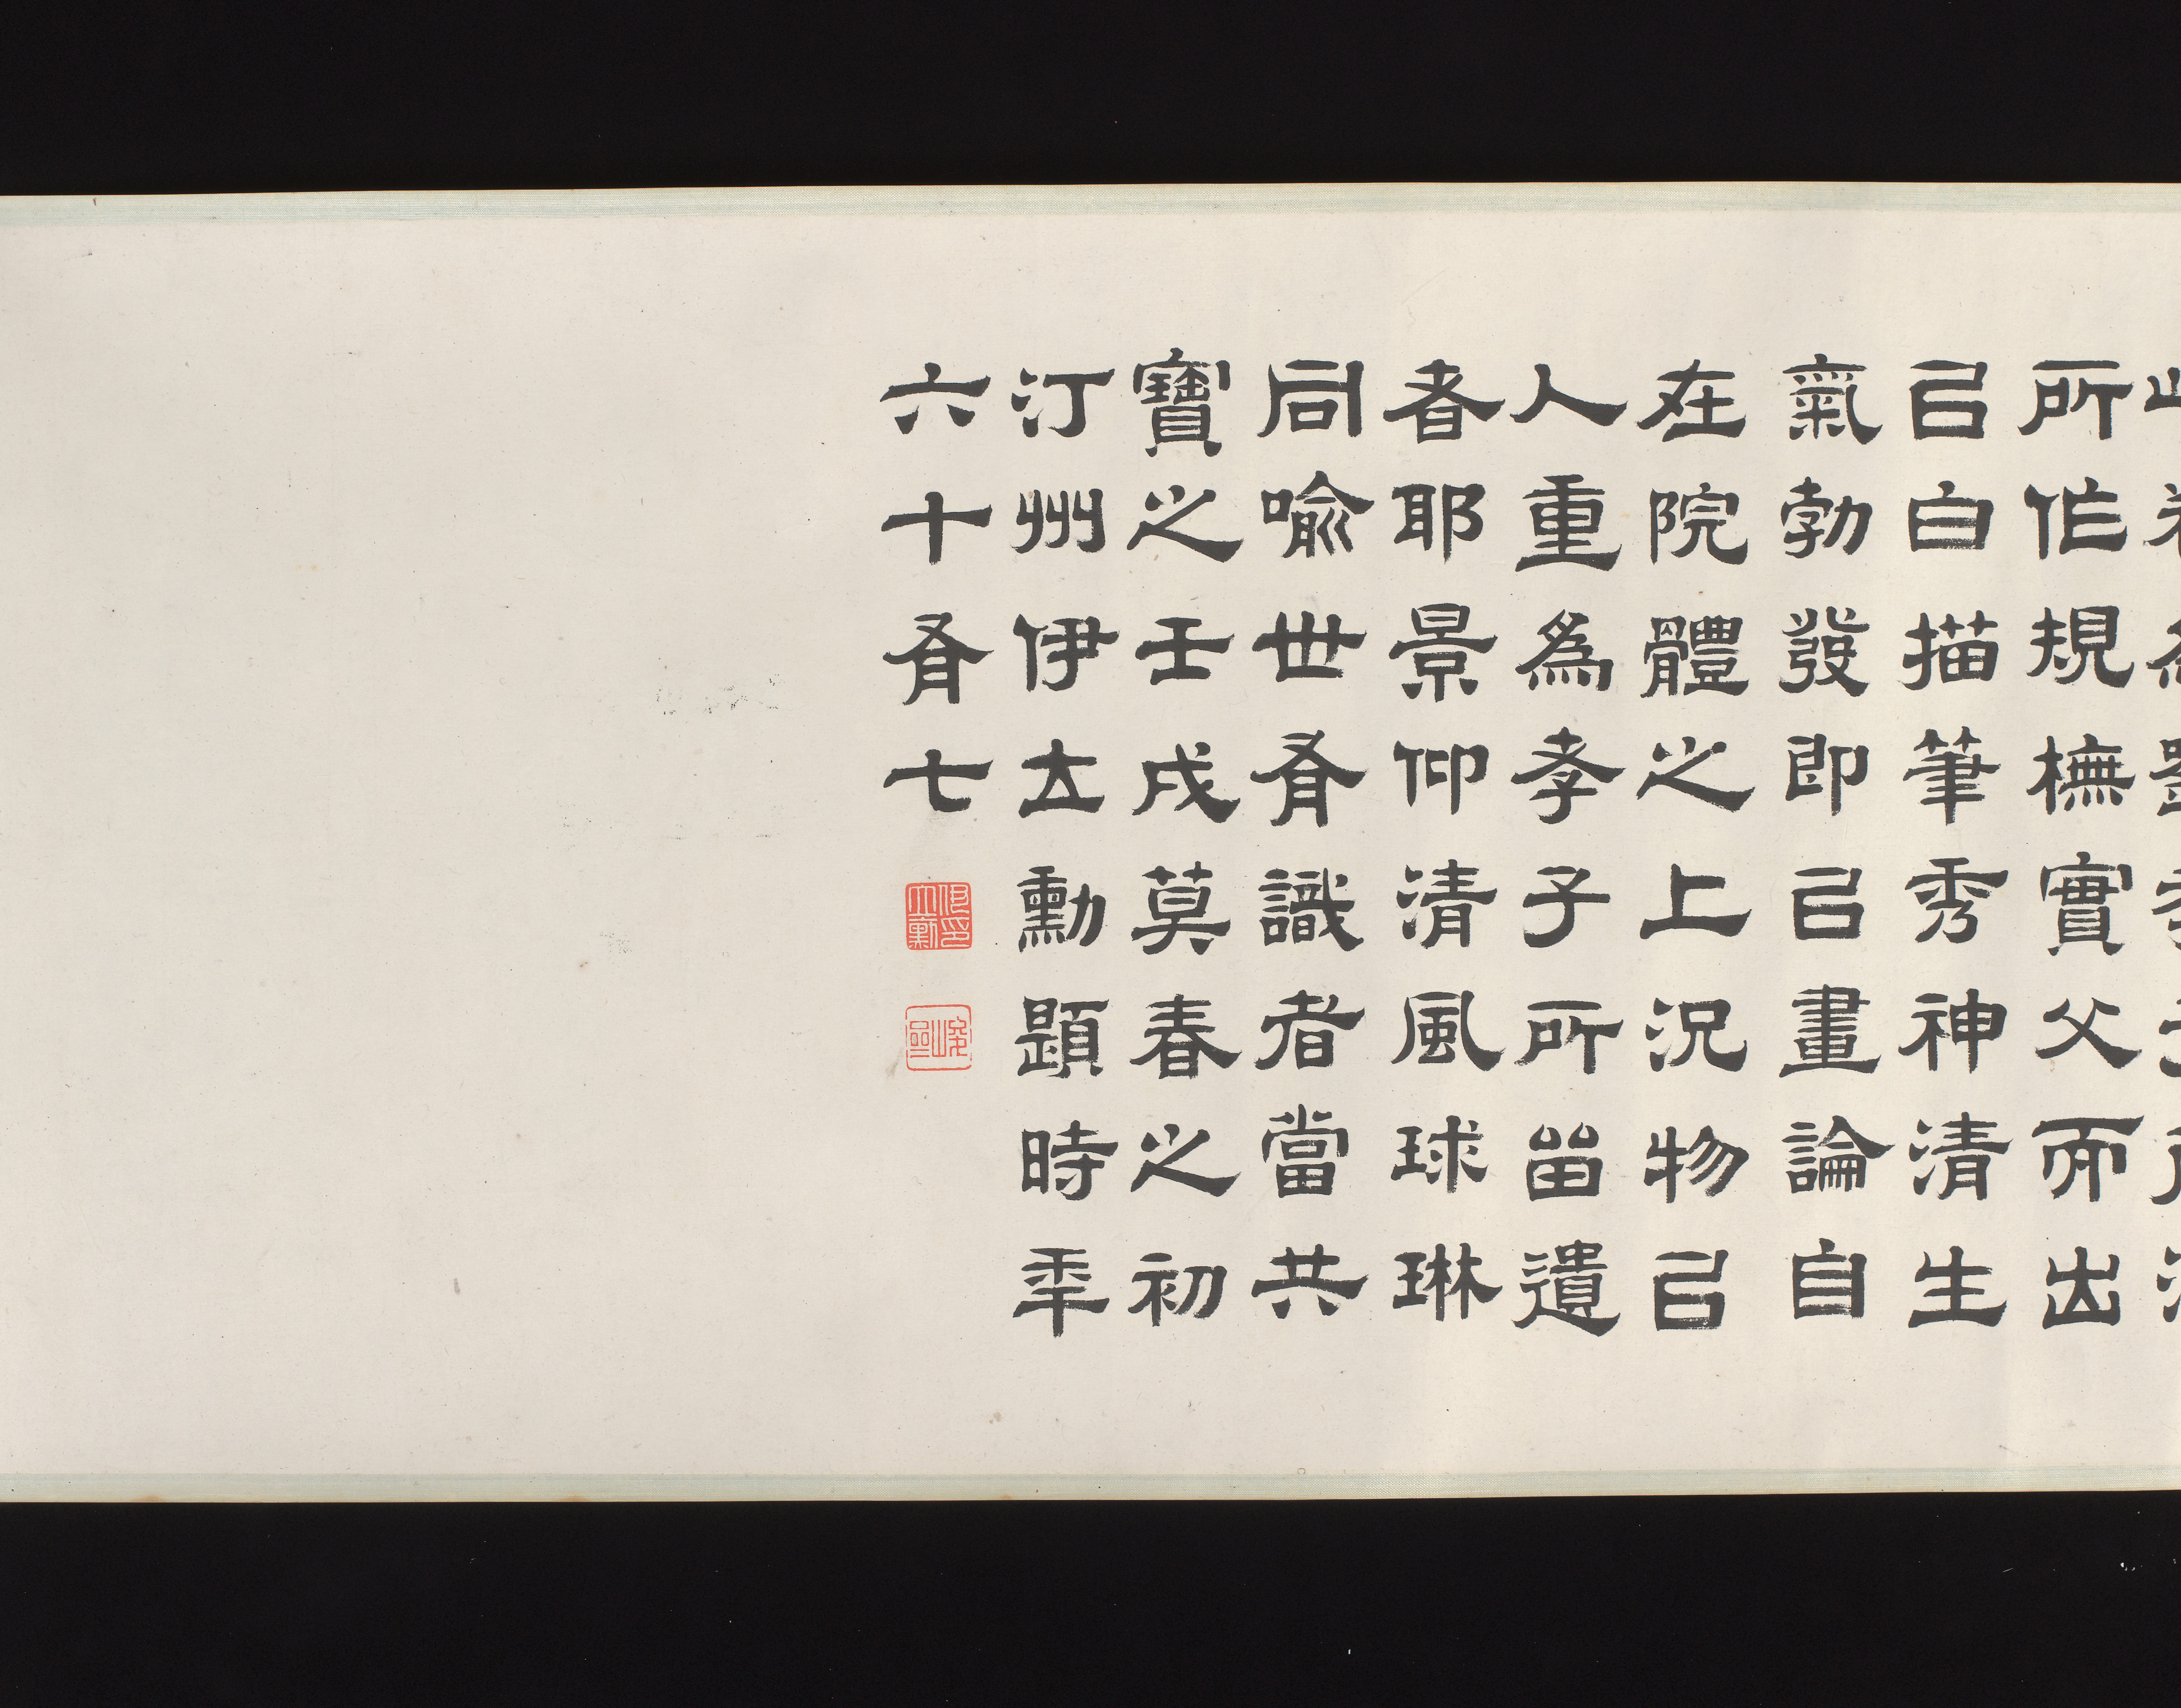 所作規橅實父而出
㠯白描筆秀神清生
氣勃發即㠯畫論自
在院體之上況物㠯
人重爲孝子所畱遺
者耶景仰清風球琳
同喻世有識者當共
寶之壬戌莫春之初
汀州伊立勳題時年
六十有七
伊立勳印
峻齋